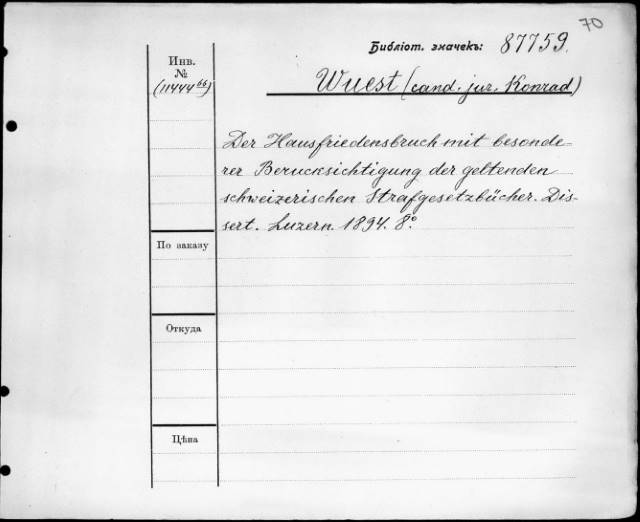 70
Библіот. значекъ: 87759.
Инв.
№
(11444 66)
Wuest (cand. jur. Konrad)
Der Hausfriedensbruch mit besonde-
rer Berucksichtigung der geltenden
schweizerischen Strafgesetzbücher. Dis-
sert. Luzern. 1894. 8º
По заказу
Откуда
Цѣна